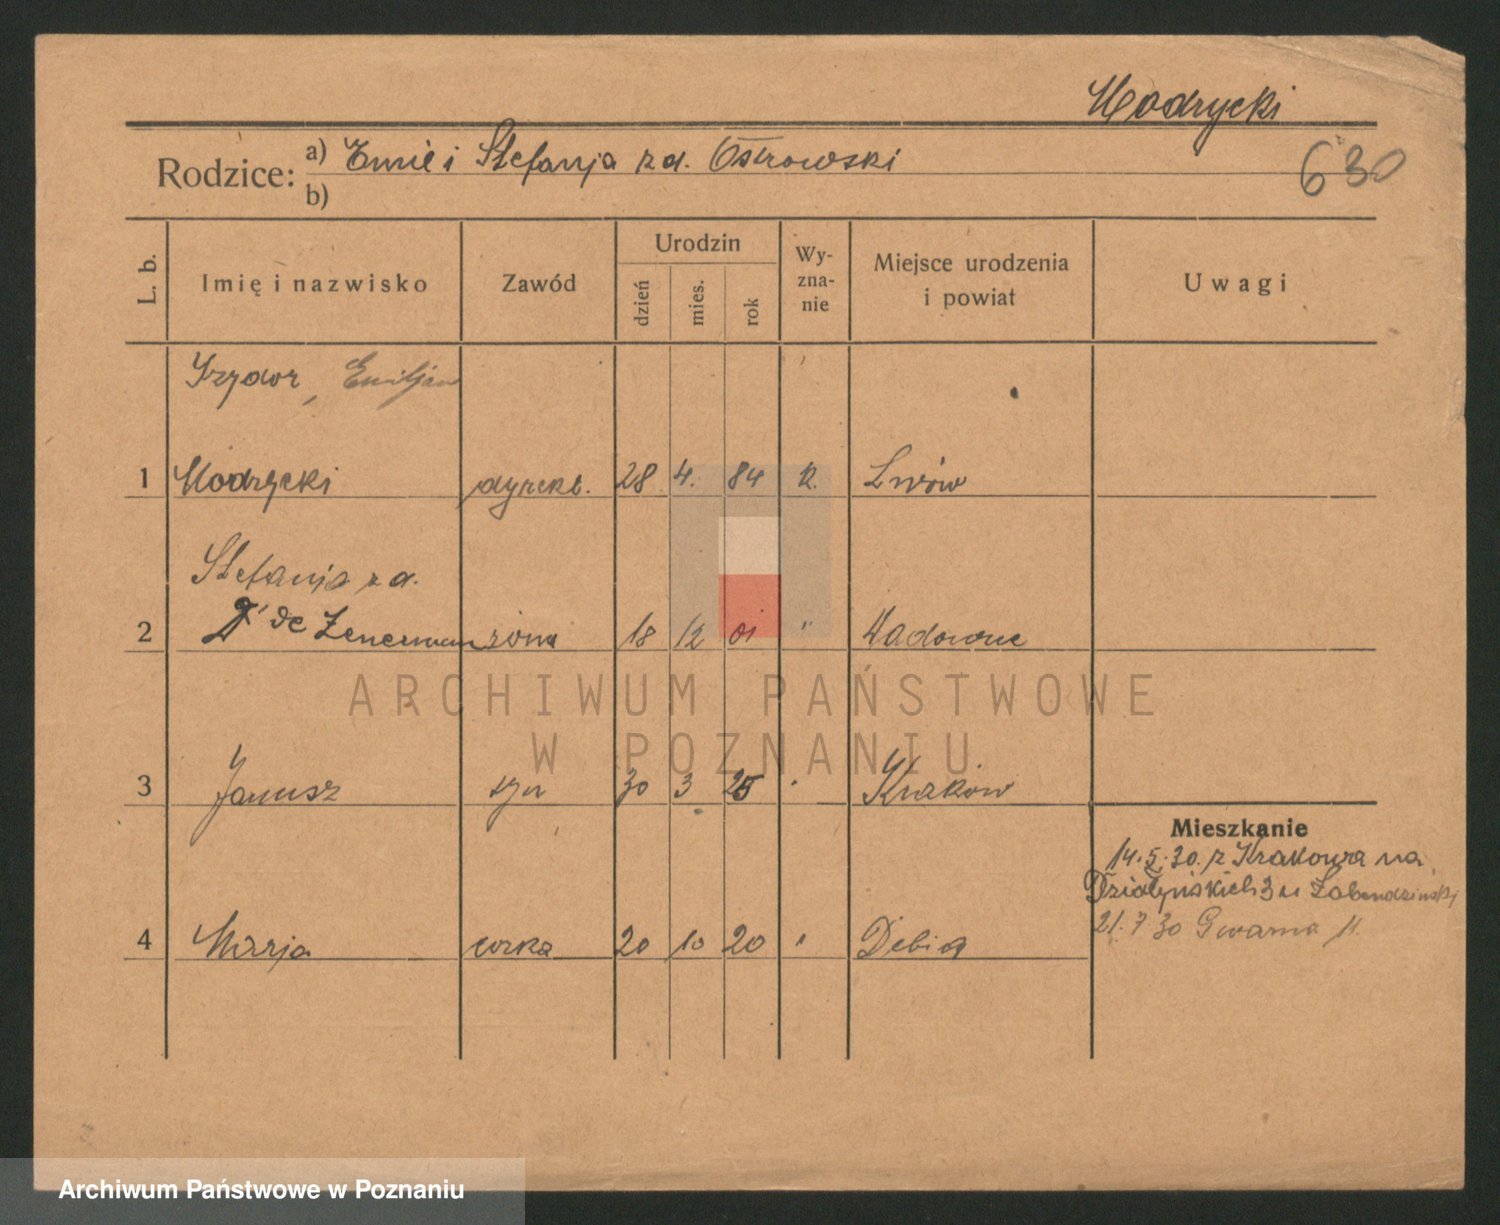 Modrycki
630
Rodzice: a) Emil i Stefanja z d. Ostrowski
b)
L. b.
Imię i nazwisko
Zawód
Urodzin
dzień
mies.
rok
Wy-
zna-
nie
Miejsce urodzenia
i powiat
Uwagi
Izydor, Emiljan
1 Modrycki dyrekt. 28 4. 84 k. Lwów
Stefanja z d.
2 de żona 18 12 01 " Wadowice
3 Janusz syn 30 3 25 " Kraków
Mieszkanie
14.5.30. z Krakowa na
Działyńskich 3 u
21.7 30 Gwarna 11
4 Marja córka 20 10 20 " Dębica
ARCHIWUM PAŃSTWOWE
W POZNANIU
Archiwum Państwowe w Poznaniu